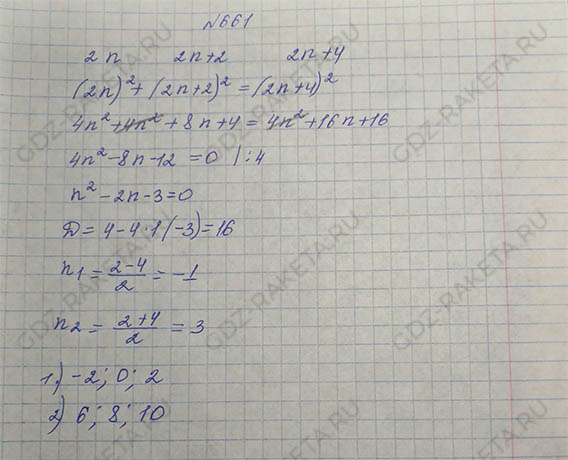 №661
2n 2n+2 2n+4
(2n)²+(2n+2)²=(2n+4)²
4n²+4n²+8n+4=4n²+16n+16
4n²-8n-12=0 |:4
n²-2n-3=0
D=4-4·1(-3)=16
n₁=(2-4)/2=-1
n₂=(2+4)/2=3
1) -2; 0; 2
2) 6; 8; 10
GDZ-RAKETA.RU
GDZ-RAKETA.RU
GDZ-RAKETA.RU
GDZ-RAKETA.RU
GDZ-RAKETA.RU
GDZ-RAKETA.RU